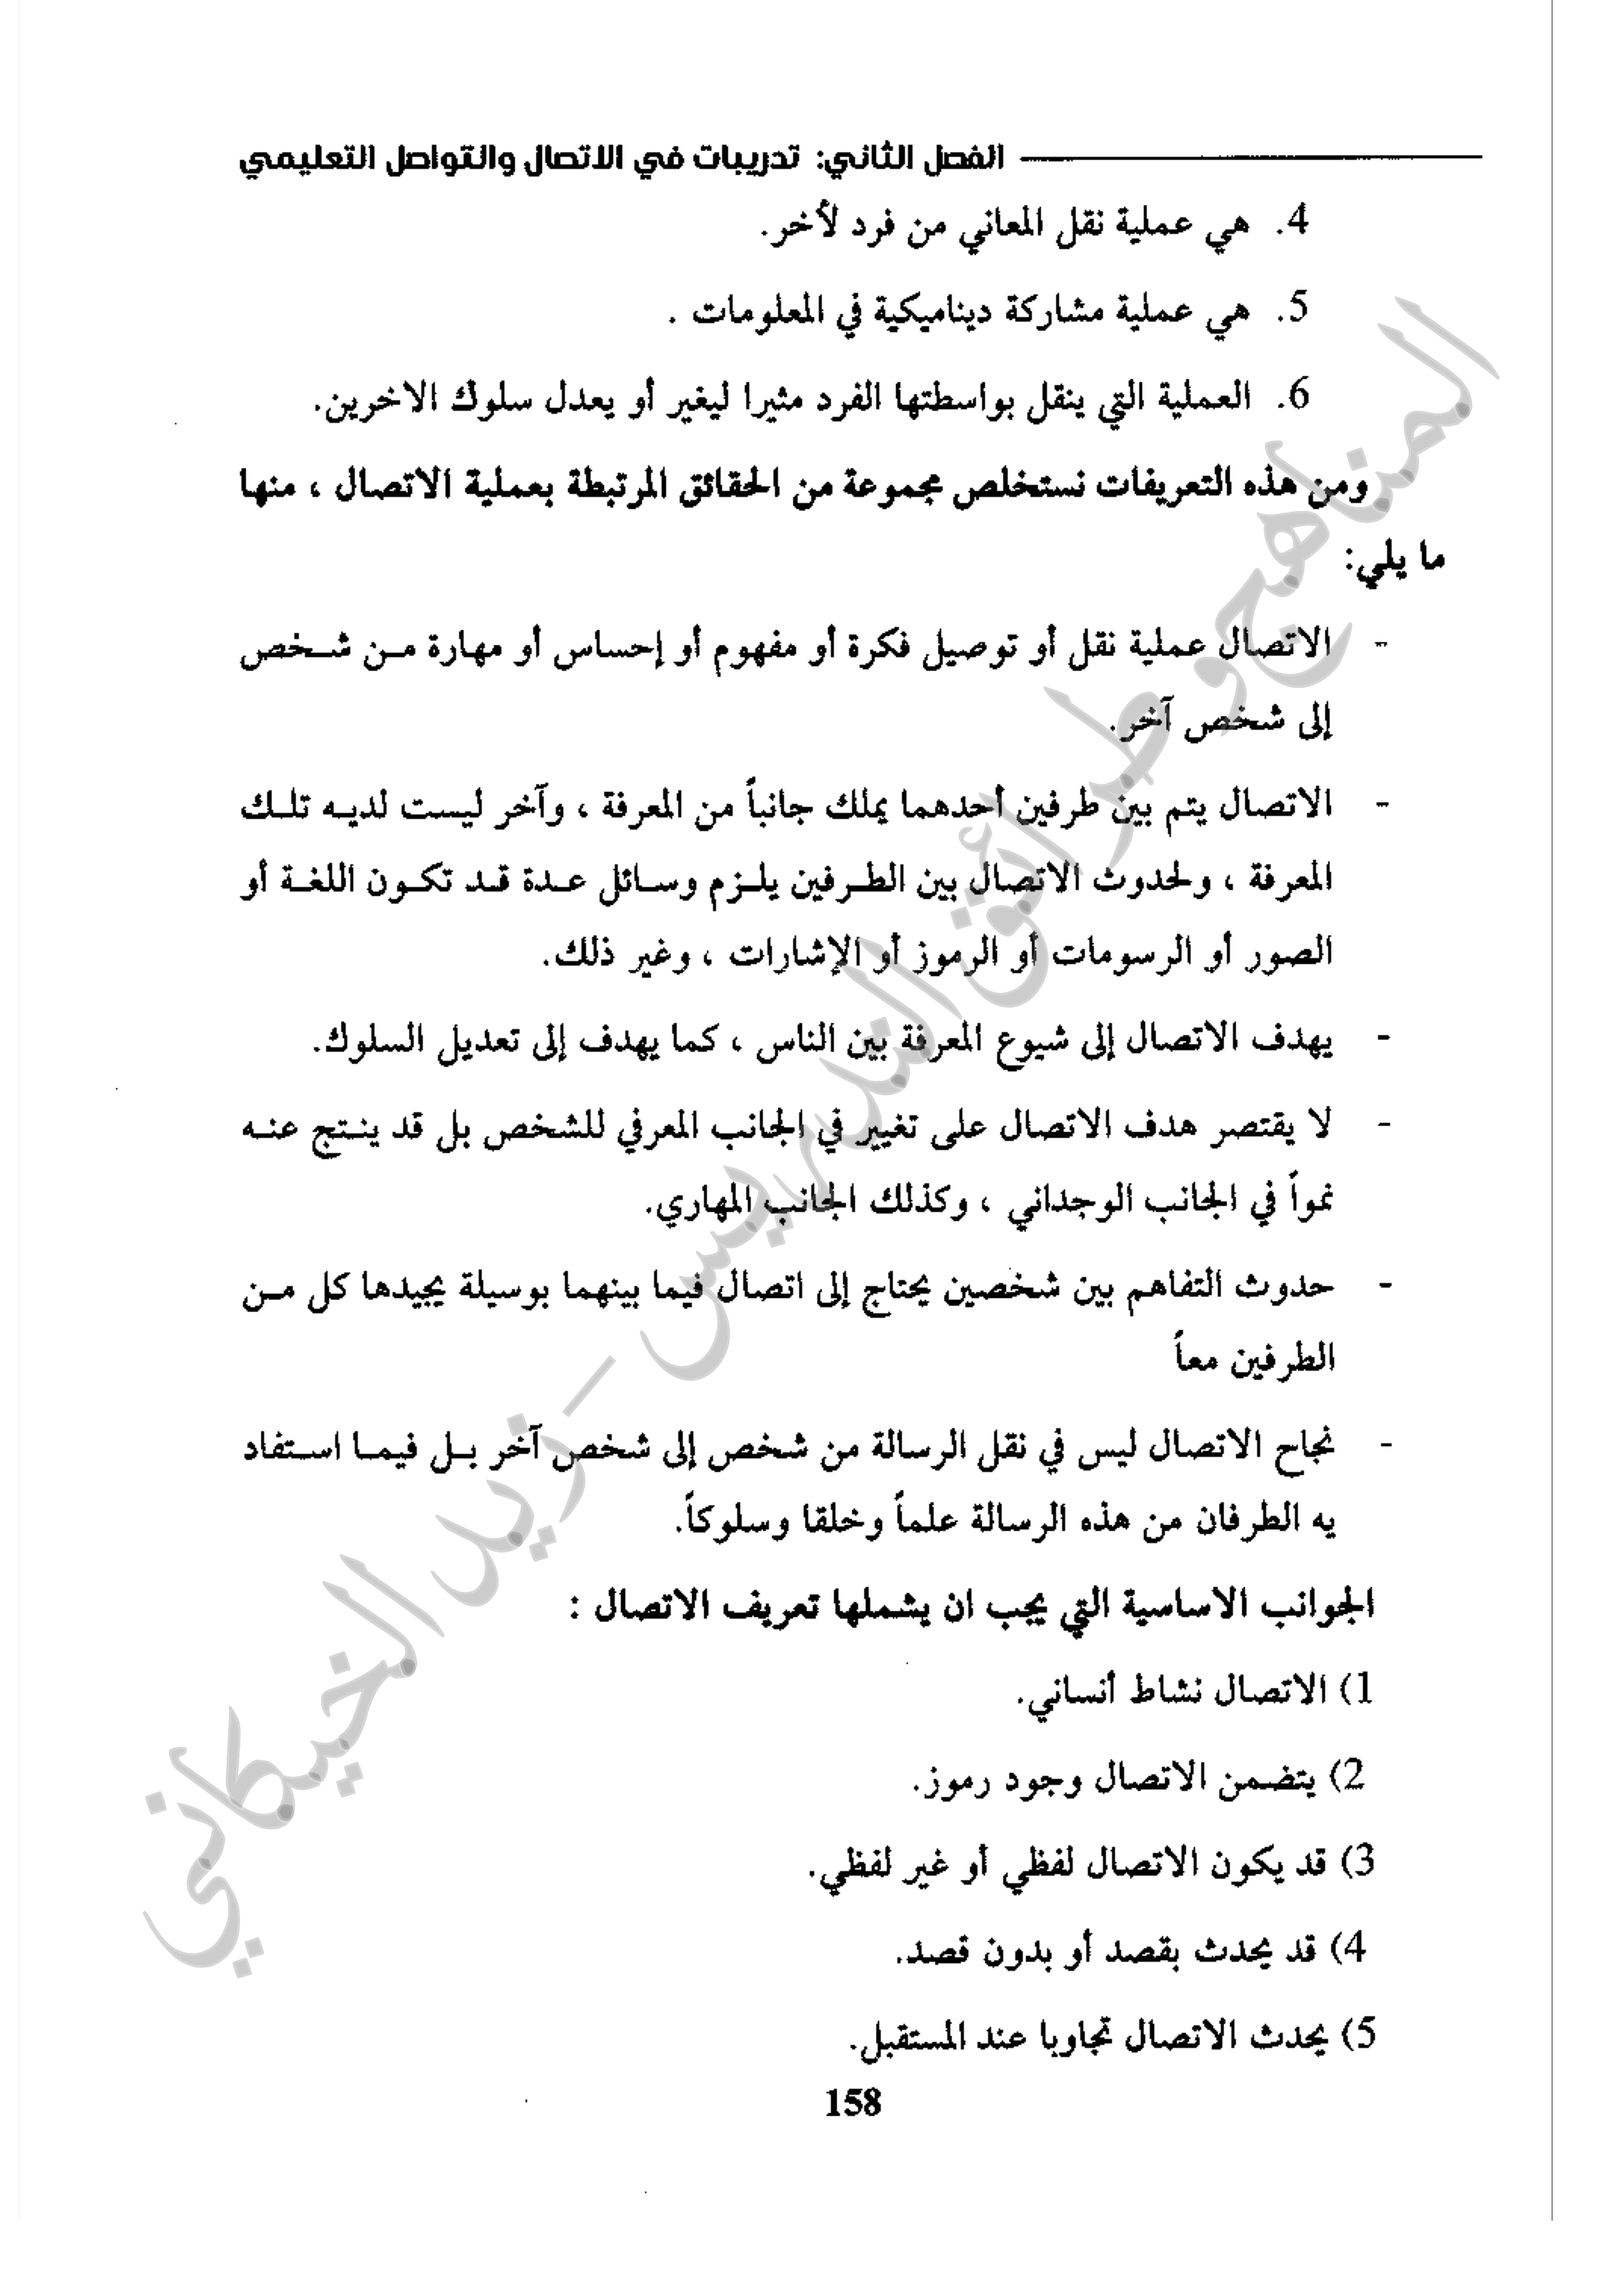 الفصل الثاني: تدريبات في الاتصال والتواصل التعليمي
4. هي عملية نقل المعاني من فرد لأخر.
5. هي عملية مشاركة ديناميكية في المعلومات .
6. العملية التي ينقل بواسطتها الفرد مثيرا ليغير أو يعدل سلوك الاخرين.
ومن هذه التعريفات نستخلص مجموعة من الحقائق المرتبطة بعملية الاتصال ، منها
ما يلي:
- الاتصال عملية نقل أو توصيل فكرة أو مفهوم أو إحساس أو مهارة من شخص
إلى شخص آخر.
- الاتصال يتم بين طرفين أحدهما يملك جانباً من المعرفة ، وآخر ليست لديه تلك
المعرفة ، ولحدوث الاتصال بين الطرفين يلزم وسائل عدة قد تكون اللغة أو
الصور أو الرسومات أو الرموز أو الإشارات ، وغير ذلك.
- يهدف الاتصال إلى شيوع المعرفة بين الناس ، كما يهدف إلى تعديل السلوك.
- لا يقتصر هدف الاتصال على تغيير في الجانب المعرفي للشخص بل قد ينتج عنه
نمواً في الجانب الوجداني ، وكذلك الجانب المهاري.
- حدوث التفاهم بين شخصين يحتاج إلى اتصال فيما بينهما بوسيلة يجيدها كل من
الطرفين معاً
- نجاح الاتصال ليس في نقل الرسالة من شخص إلى شخص آخر بل فيما استفاد
يه الطرفان من هذه الرسالة علماً وخلقا وسلوكاً.
الجوانب الاساسية التي يجب ان يشملها تعريف الاتصال :
1) الاتصال نشاط أنساني.
2) يتضمن الاتصال وجود رموز.
3) قد يكون الاتصال لفظي أو غير لفظي.
4) قد يحدث بقصد أو بدون قصد.
5) يحدث الاتصال تجاوبا عند المستقبل.
158
المناهج وطرائق التدريس - زيد الخيكاني